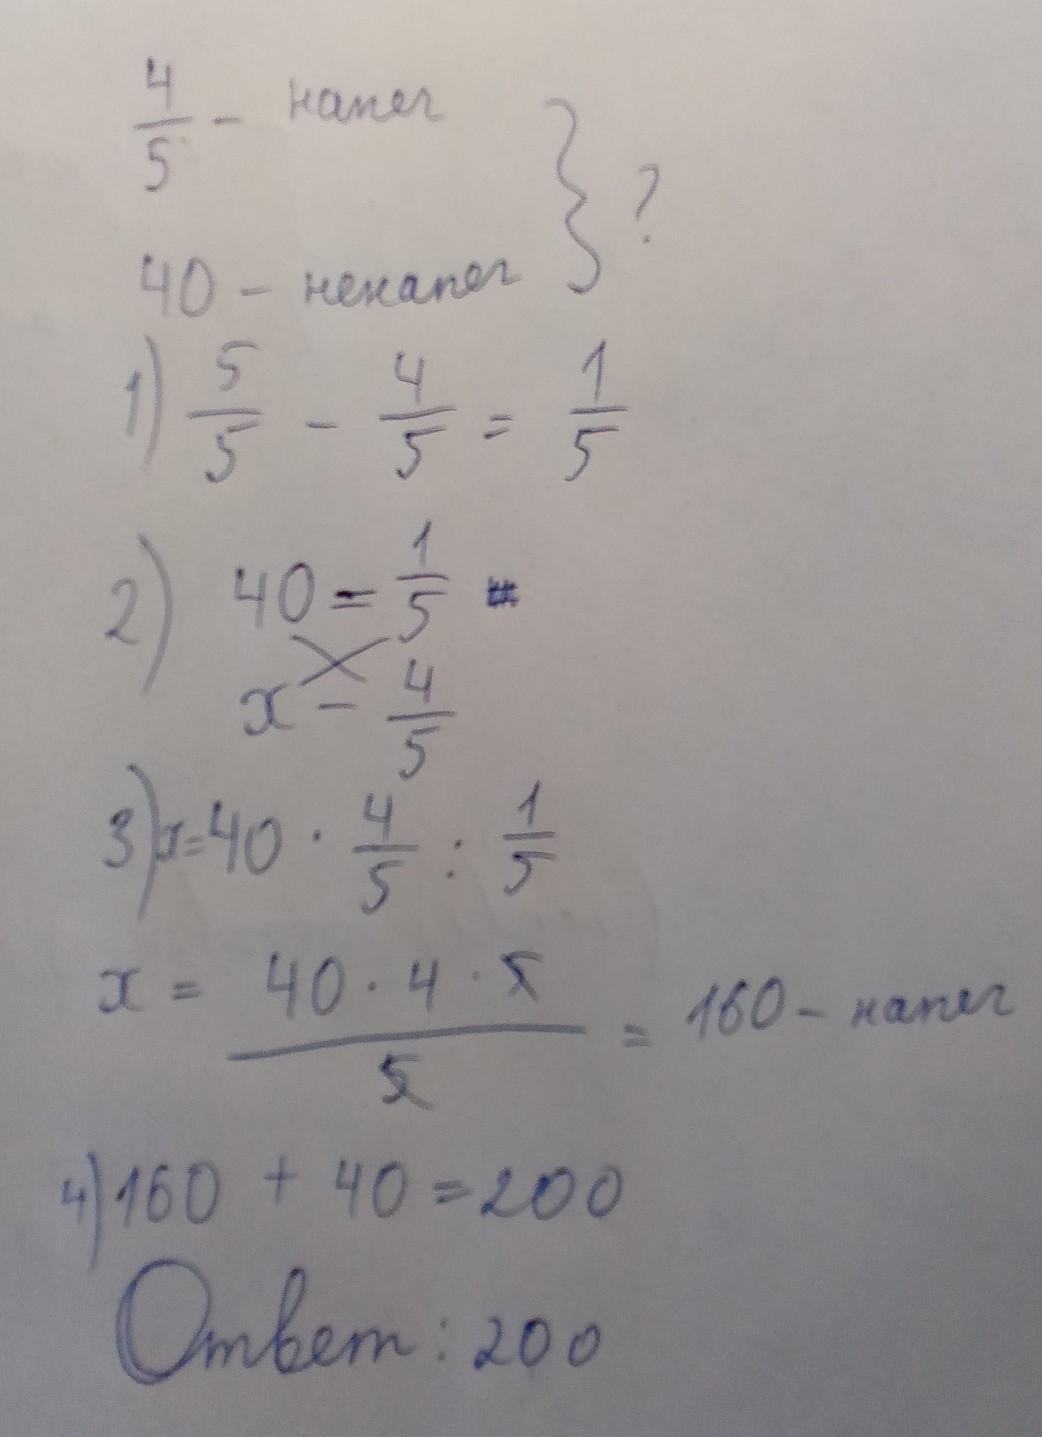 4/5 - напег
} ?
40 - ненапег
1) 5/5 - 4/5 = 1/5
2) 40 = 1/5
x - 4/5
3) x = 40 · 4/5 : 1/5
x = 40 · 4 · 5 / 5 = 160 - напег
4) 160 + 40 = 200
Ответ: 200